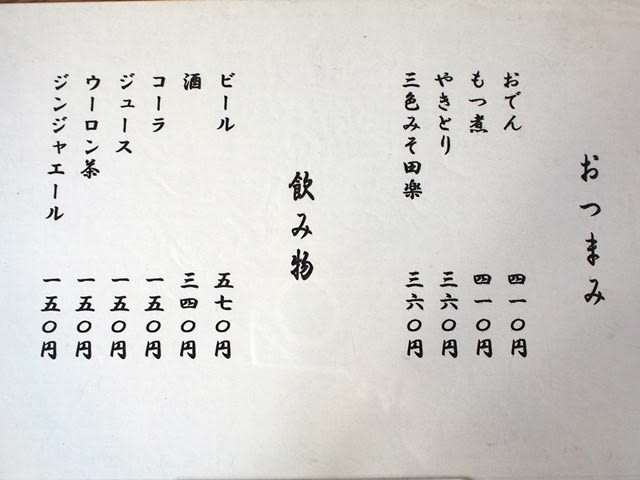 おつまみ
おでん 四一〇円
もつ煮 四一〇円
やきとり 三六〇円
三色みそ田楽 三六〇円
飲み物
ビール 五七〇円
酒 三四〇円
コーラ 一五〇円
ジュース 一五〇円
ウーロン茶 一五〇円
ジンジャエール 一五〇円